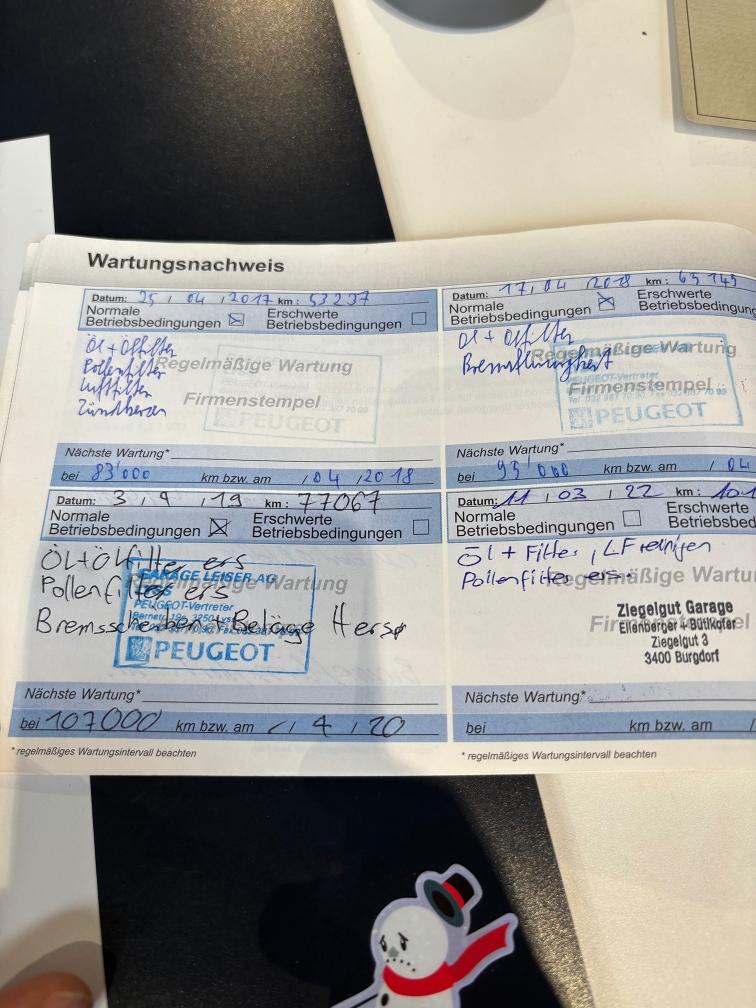 Wartungsnachweis
Datum: 25 / 04 / 2017 km: 53237
Normale Betriebsbedingungen ☒ Erschwerte Betriebsbedingungen ☐
Öl + Ölfilter
Pollenfilter
Luftfilter
Zündkerzen
Regelmäßige Wartung
Firmenstempel
PEUGEOT
Nächste Wartung*
bei 83'000 km bzw. am / 04 / 2018
Datum: 17 / 04 / 2018 km: 65149
Normale Betriebsbedingungen ☒ Erschwerte Betriebsbedingungen
Öl + Ölfilter
Bremsflüssigkeit
Regelmäßige Wartung
PEUGEOT-Vertreter
Firmenstempel
PEUGEOT
Nächste Wartung*
bei 95'000 km bzw. am / 04
Datum: 3 / 9 / 19 km: 77067
Normale Betriebsbedingungen ☒ Erschwerte Betriebsbedingungen ☐
Öl + Ölfilter ers
Pollenfilter ers
Bremsscheiben + Beläge H ers
Regelmäßige Wartung
GARAGE LEISER AG
PEUGEOT-Vertreter
PEUGEOT
Nächste Wartung*
bei 107000 km bzw. am / 4 / 20
* regelmäßiges Wartungsintervall beachten
Datum: 11 / 03 / 22 km:
Normale Betriebsbedingungen ☐ Erschwerte
Öl + Filter, LF reinigen
Pollenfilter ers.
Regelmäßige Wartu
Ziegelgut Garage
Ellenberger + Bütikofer
Ziegelgut 3
3400 Burgdorf
Nächste Wartung*
bei km bzw. am /
* regelmäßiges Wartungsintervall beachten